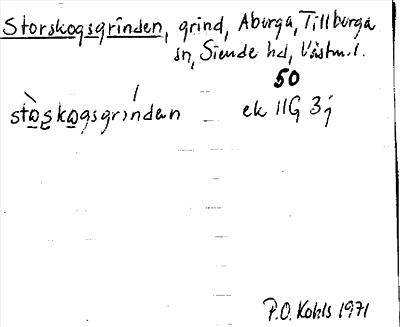 Storskogsgrinden, grind, Åborga, Tillberga
sn, Siende hd, Västm.l.
50
stò̱s̱ko̱gsgríndan ek 11G 3j
P.O. Kohls 1971